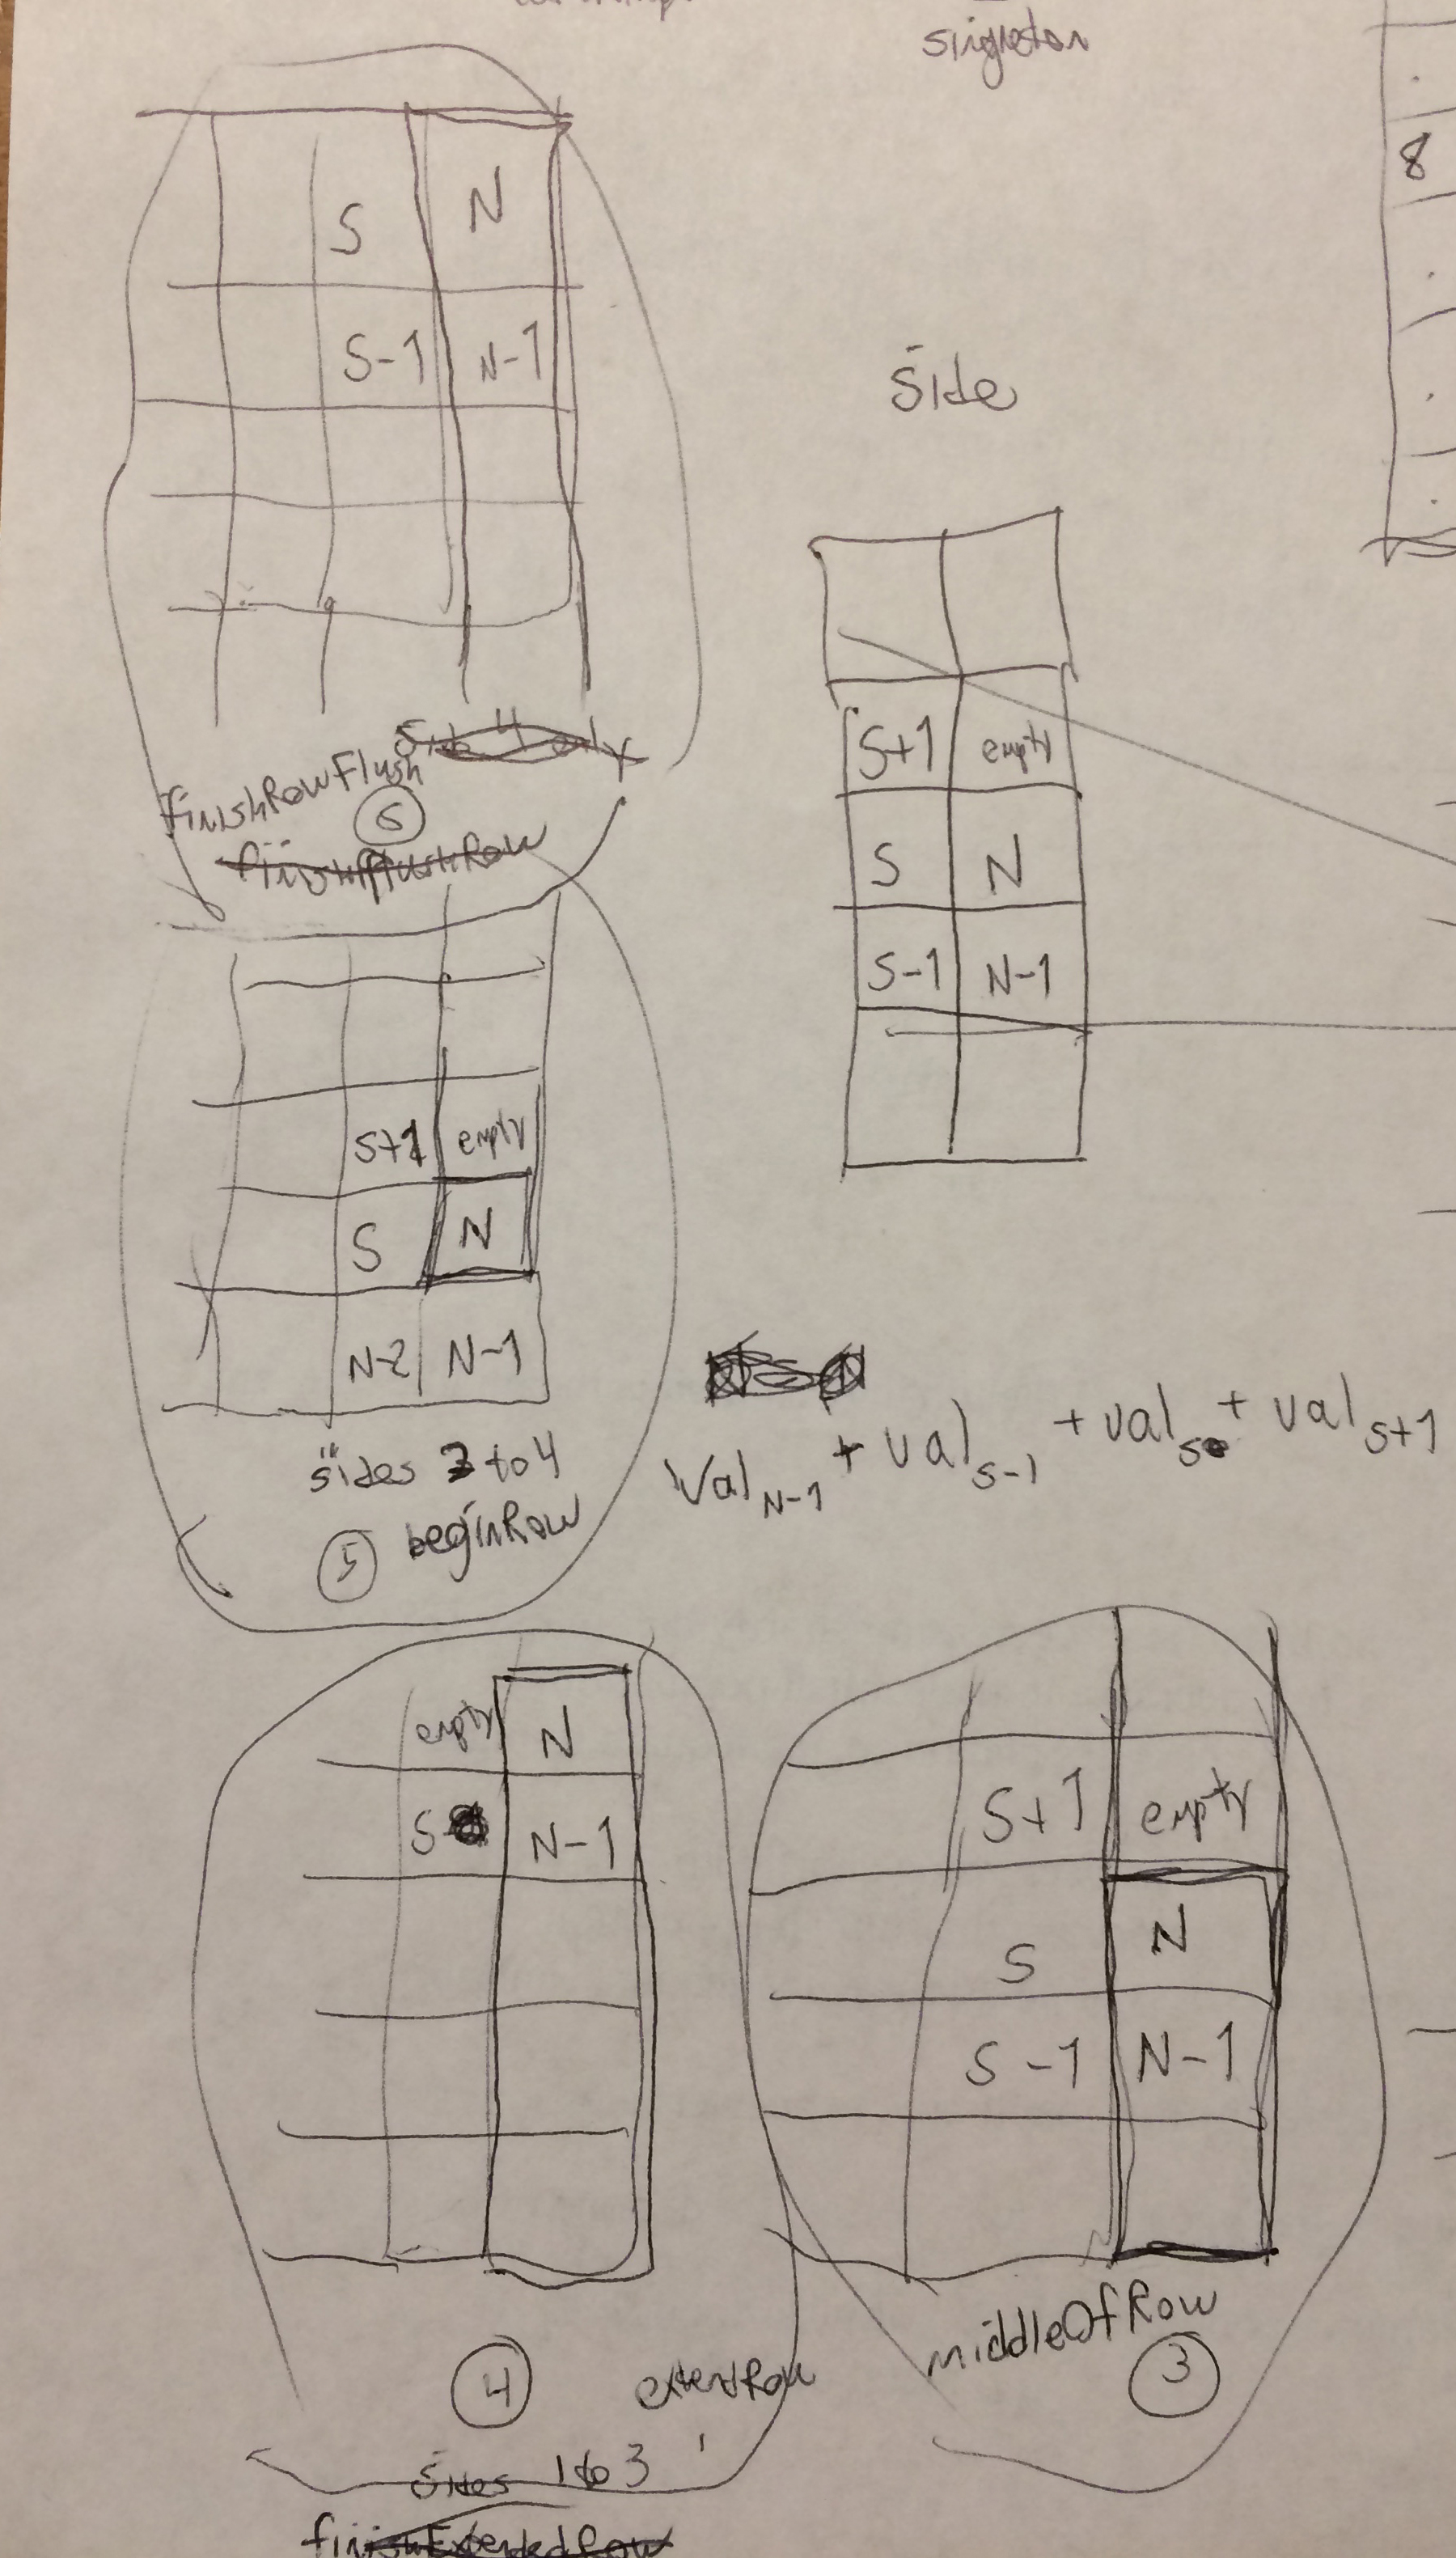 singleton
8
S N
S-1 N-1
finishRowFlush
6
side
S+1 empty
S N
S-1 N-1
S+1 empty
S N
N-2 N-1
sides 2 to 4
5 beginRow
Val N-1 + val S-1 + val S + val S+1
empty N
S N-1
4 extendRow
sides 1 to 3
S+1 empty
S N
S-1 N-1
middleOfRow
3